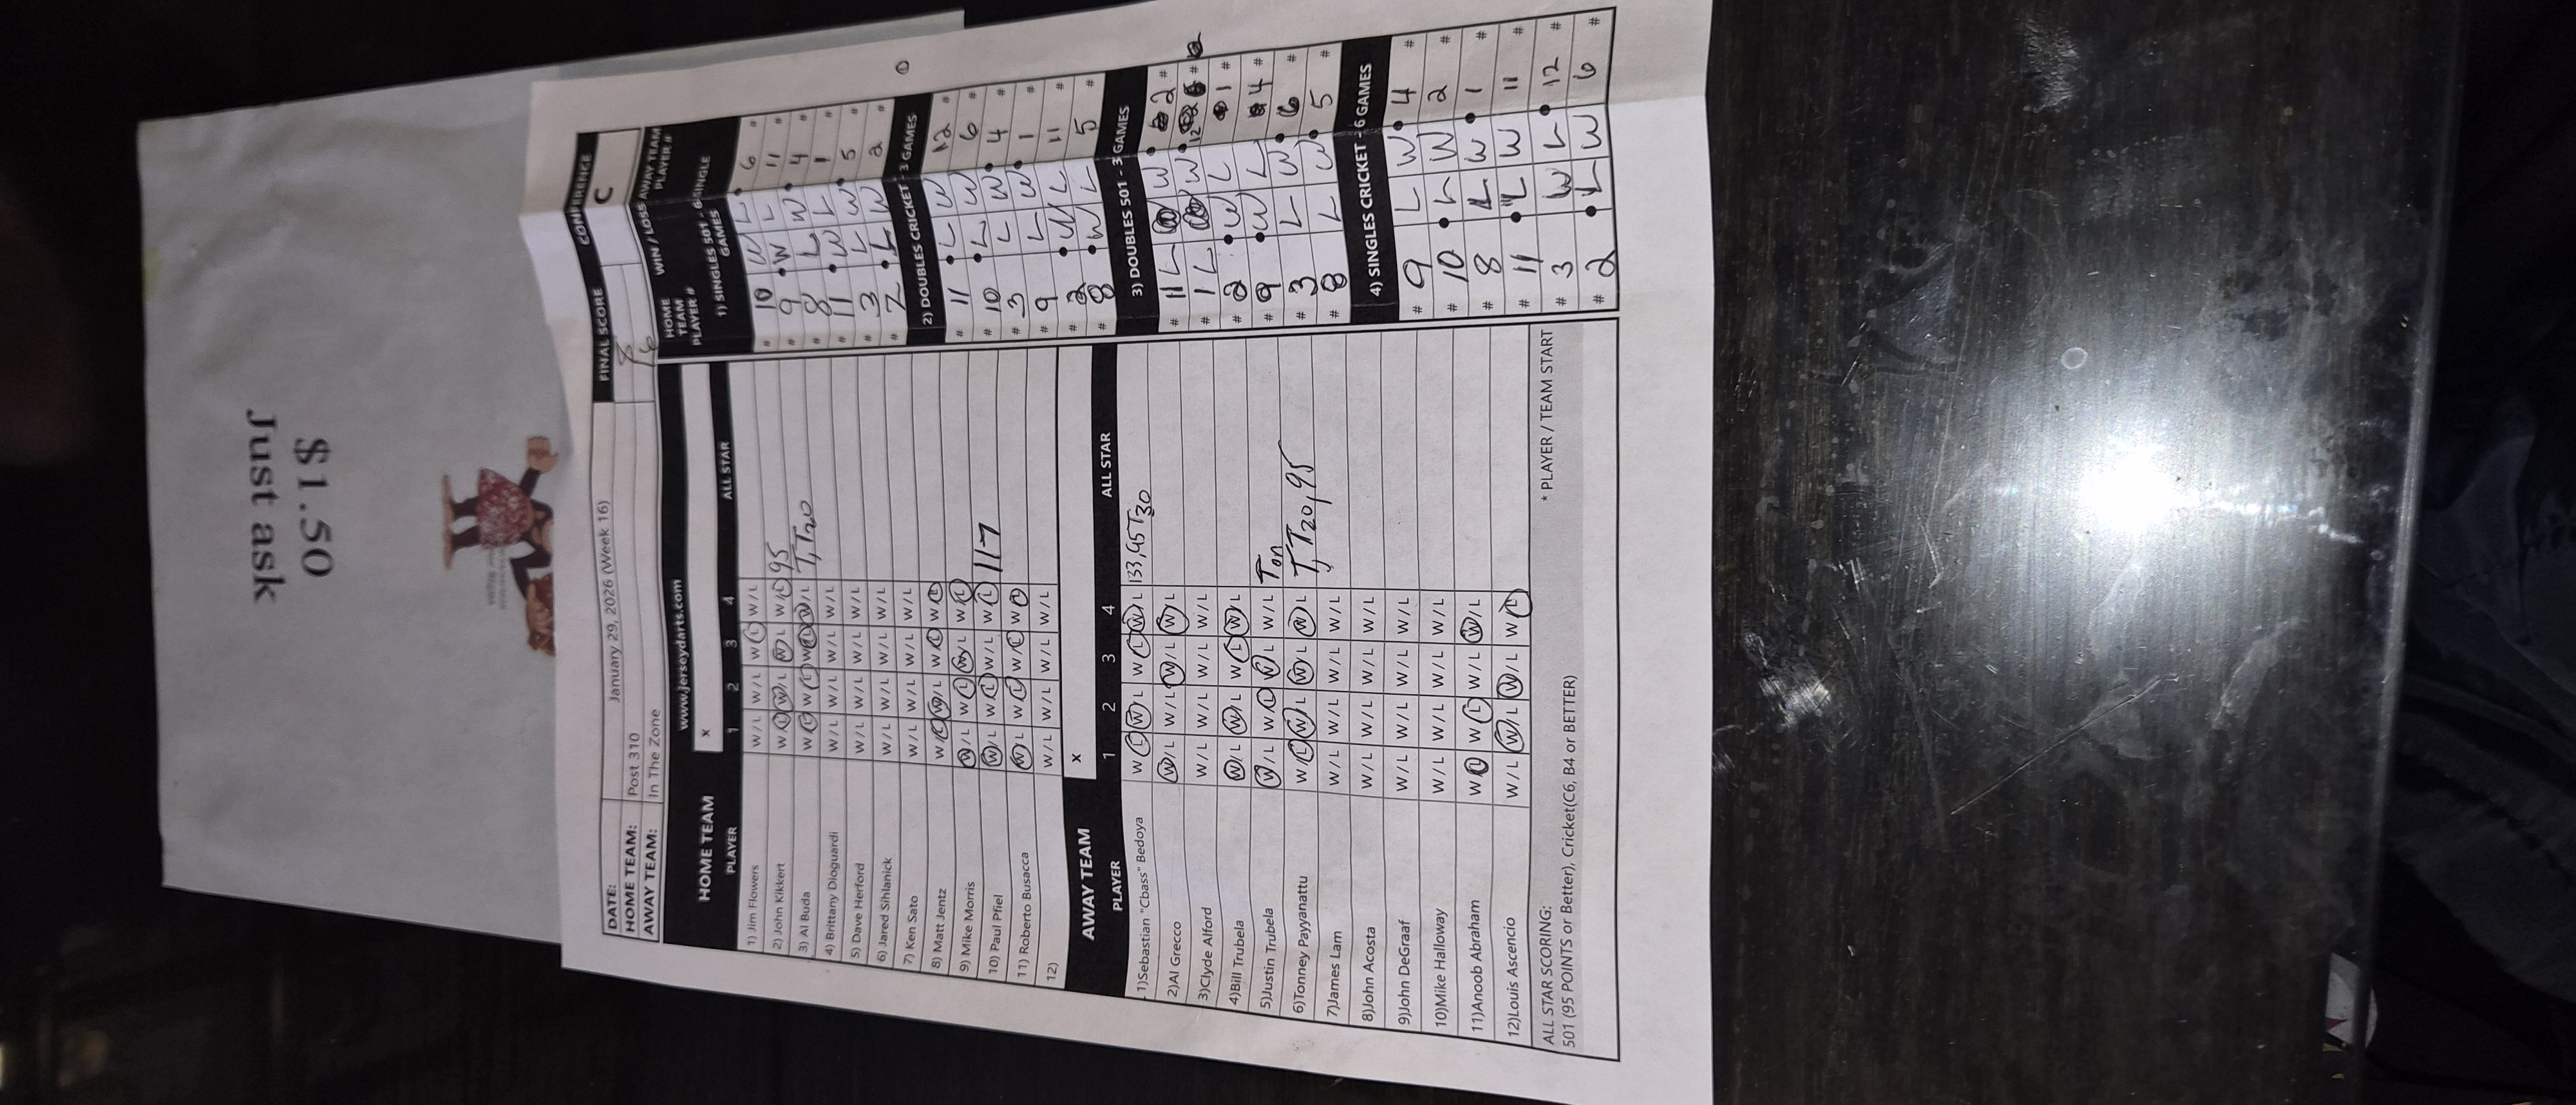 $1.50
Just ask
DATE: January 29, 2026 (Week 16)
HOME TEAM: Post 310
AWAY TEAM: In The Zone
FINAL SCORE
CONFERENCE
C
www.jerseydarts.com
HOME TEAM x
PLAYER 1 2 3 4 ALL STAR
1) Jim Flowers W / L W / L W / L W / L
2) John Kikkert W / L W / L W / L W / L 95
3) Al Buda W / L W / L W / L W / L T, T20
4) Brittany Dioguardi W / L W / L W / L W / L
5) Dave Herford W / L W / L W / L W / L
6) Jared Sihlanick W / L W / L W / L W / L
7) Ken Sato W / L W / L W / L W / L
8) Matt Jentz W / L W / L W / L W / L
9) Mike Morris W / L W / L W / L W / L
10) Paul Pfiel W / L W / L W / L W / L 117
11) Roberto Busacca W / L W / L W / L W / L
12) W / L W / L W / L W / L
AWAY TEAM x
PLAYER 1 2 3 4 ALL STAR
1)Sebastian "Cbass" Bedoya W / L W / L W / L W / L 133, 95 T30
2)Al Grecco W / L W / L W / L W / L
3)Clyde Alford W / L W / L W / L W / L
4)Bill Trubela W / L W / L W / L W / L
5)Justin Trubela W / L W / L W / L W / L Ton
6)Tonney Payyanattu W / L W / L W / L W / L T, T20, 95
7)James Lam W / L W / L W / L W / L
8)John Acosta W / L W / L W / L W / L
9)John DeGraaf W / L W / L W / L W / L
10)Mike Halloway W / L W / L W / L W / L
11)Anoob Abraham W / L W / L W / L W / L
12)Louis Ascencio W / L W / L W / L W / L
ALL STAR SCORING: * PLAYER / TEAM START
501 (95 POINTS or Better), Cricket(C6, B4 or BETTER)
HOME TEAM PLAYER # WIN / LOSS AWAY TEAM PLAYER #
1) SINGLES 501 - 6 SINGLE GAMES
# 10 W L 6 #
# 9 W L 11 #
# 8 L W 4 #
# 11 W L 1 #
# 3 L W 5 #
# 2 L W 2 #
2) DOUBLES CRICKET - 3 GAMES
# 11 L W 12 #
# 10 L W 6 #
# 3 L W 4 #
# 9 L W 1 #
# 2 W L 11 #
# 8 W L 5 #
3) DOUBLES 501 - 3 GAMES
# 11 L W 2 #
# 1 L W 12 #
# 2 W L 1 #
# 9 W L 4 #
# 3 L W 6 #
# 8 L W 5 #
4) SINGLES CRICKET - 6 GAMES
# 9 L W 4 #
# 10 L W 2 #
# 8 L W 1 #
# 11 L W 11 #
# 3 W L 12 #
# 2 L W 6 #